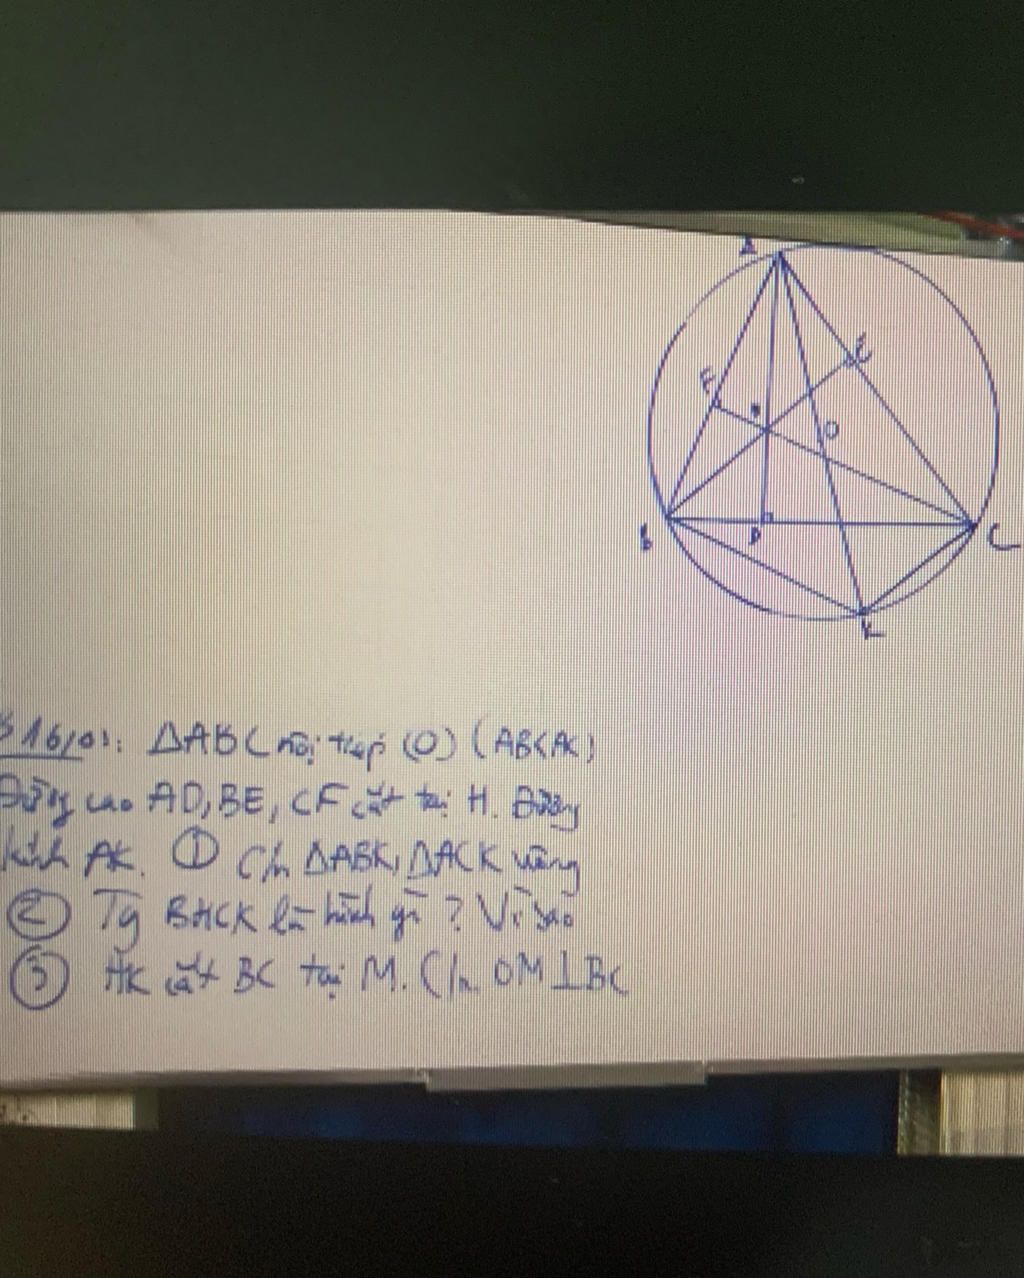 A
E
F
H
O
B
D
C
K
B16/01: ΔABC nội tiếp (O) (AB<AC)
Đường cao AD, BE, CF cắt tại H. Đường
kính AK. ① C/m ΔABK, ΔACK vuông
② Tg BHCK là hình gì? Vì sao
③ HK cắt BC tại M. C/m OM⊥BC